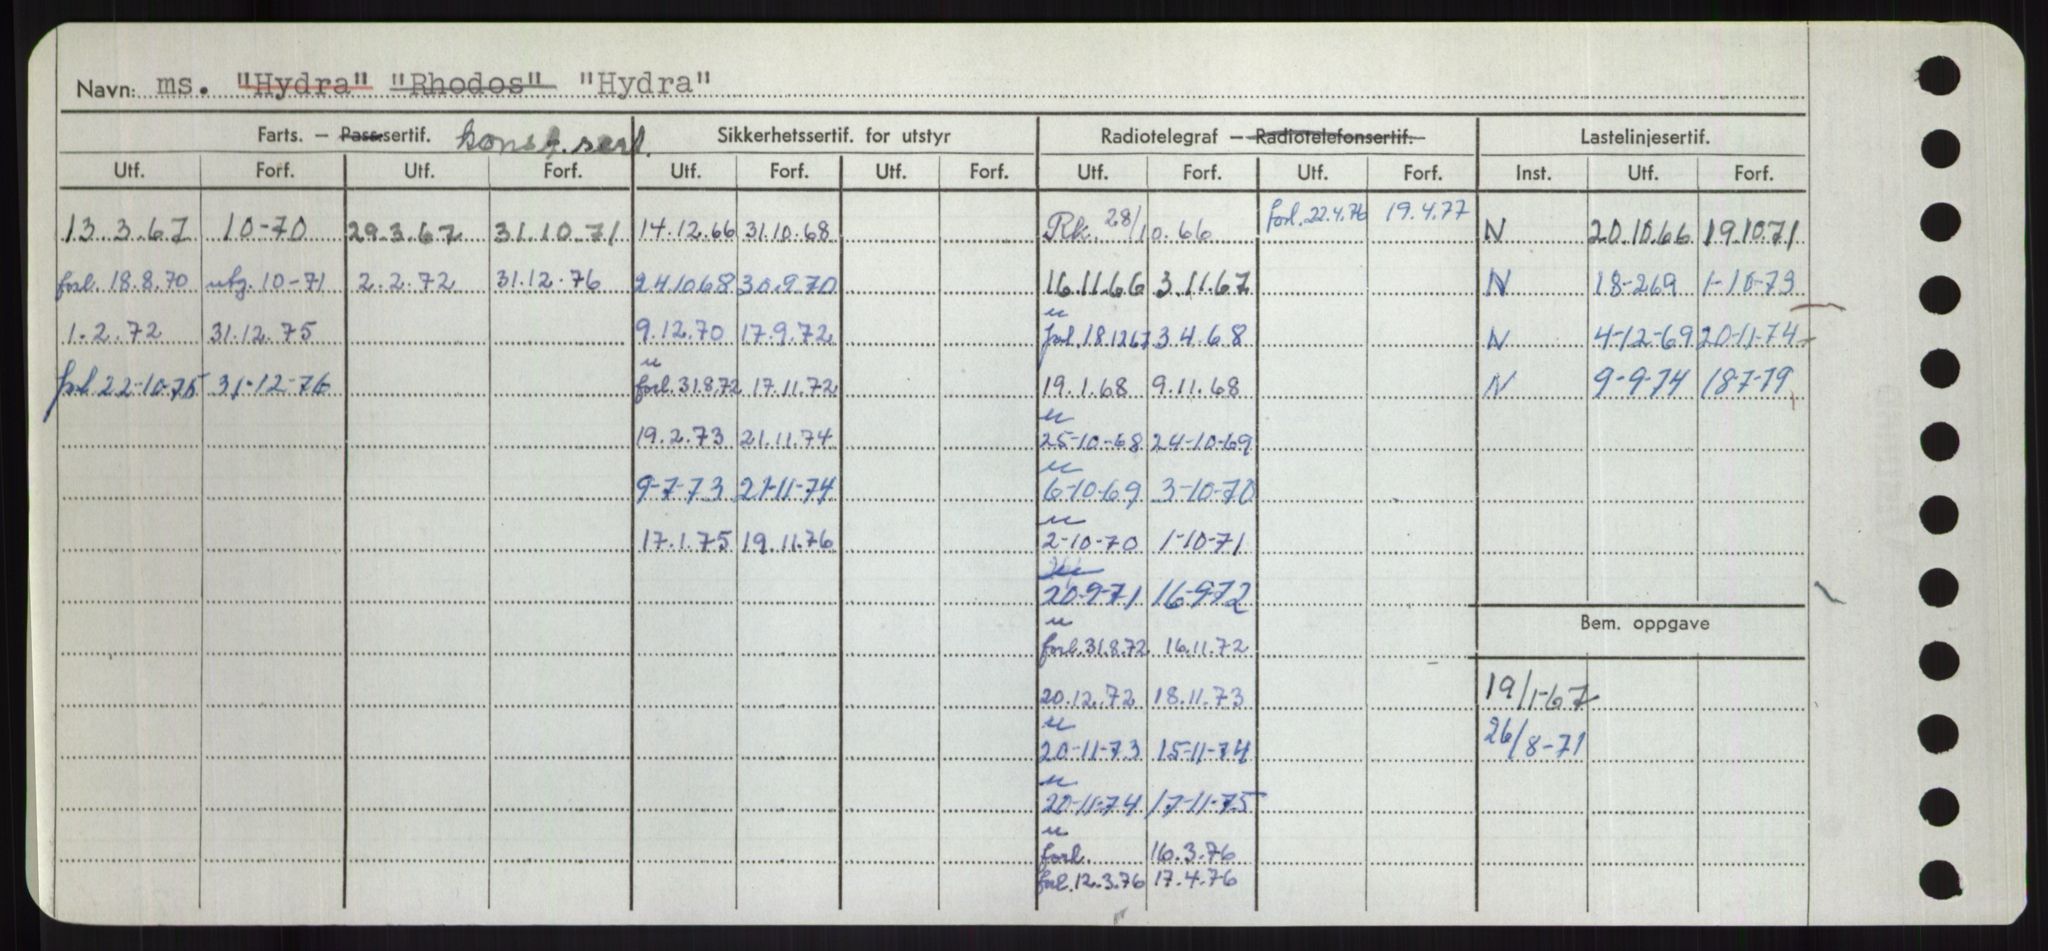 Navn: ms. "Hydra" "Rhodos" "Hydra"
Farts. — Pass.sertif. konst. sert. Sikkerhetssertif. for utstyr Radiotelegraf — Radiotelefonsertif. Lastelinjesertif.
Utf. Forf. Utf. Forf. Utf. Forf. Utf. Forf. Utf. Forf. Utf. Forf. Inst. Utf. Forf.
13.3.67 10-70 29.3.67 31.10.71 14.12.66 31.10.68 Rk. 28/10.66 forl. 22.4.76 19.4.77 N 20.10.66 19.10.71
forl. 18.8.70 utg. 10-71 2.2.72 31.12.76 24.10.68 30.9.70 16.11.66 3.11.67 N 18-2.69 1-10-73
1.2.72 31.12.75 9.12.70 17.9.72 forl. 18.12.67 3.4.68 N 4-12-69 20-11-74
forl 22-10-75 31-12-76 forl. 31.8.72 17.11.72 19.1.68 9.11.68 N 9-9-74 18-7-79
19.2.73 21.11.74 25-10-68 24-10-69
9-7-73 21-11-74 6-10-69 3-10-70
17.1.75 19.11.76 2-10-70 1-10-71
20-9-71 16-9-72
Bem. oppgave
forl. 31.8.72 16.11.72
20.12.72 18.11.73 19/1-67
20-11-73 15-11-74 26/8-71
20-11-74 17-11-75
forl. 16.3.76
forl. 12.3.76 17.4.76